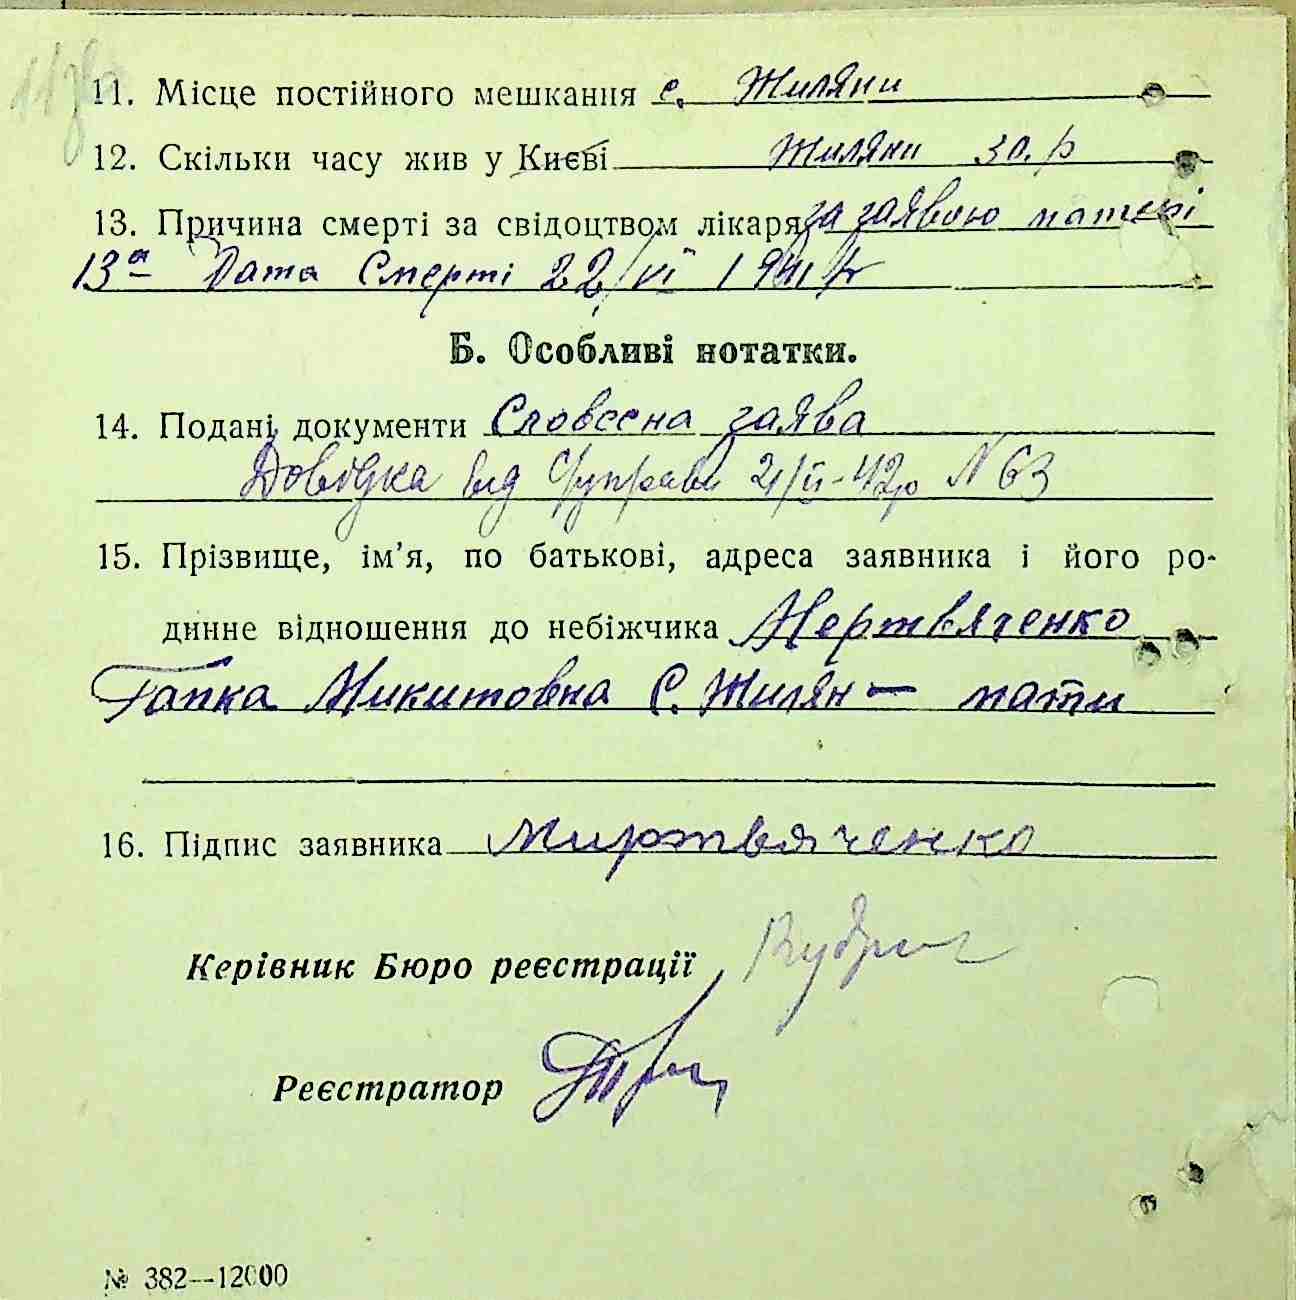 11. Місце постійного мешкання с. Жиляни
12. Скільки часу жив у Києві Жиляни 30. р
13. Причина смерті за свідоцтвом лікаря за заявою матері
13а Дата Смерті 22/VI 1941 р
Б. Особливі нотатки.
14. Подані документи Словесна заява
Довідка від С/управи 21/II-42р N 63
15. Прізвище, ім'я, по батькові, адреса заявника і його ро-
динне відношення до небіжчика Мертвяченко
Гапка Микитовна С. Жилян — мати
16. Підпис заявника Миртвяченко
Керівник Бюро реєстрації
Реєстратор
№ 382—12000